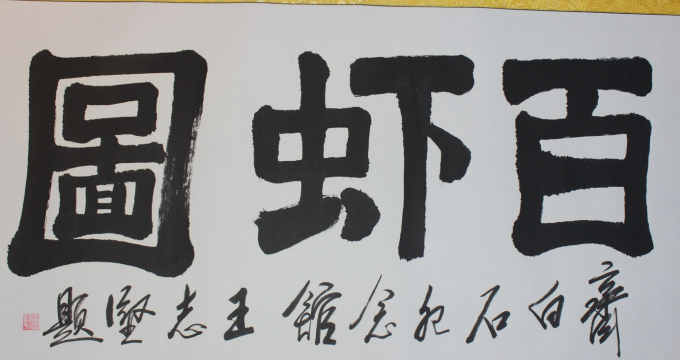 百虾圖
齊白石紀念館王志堅題